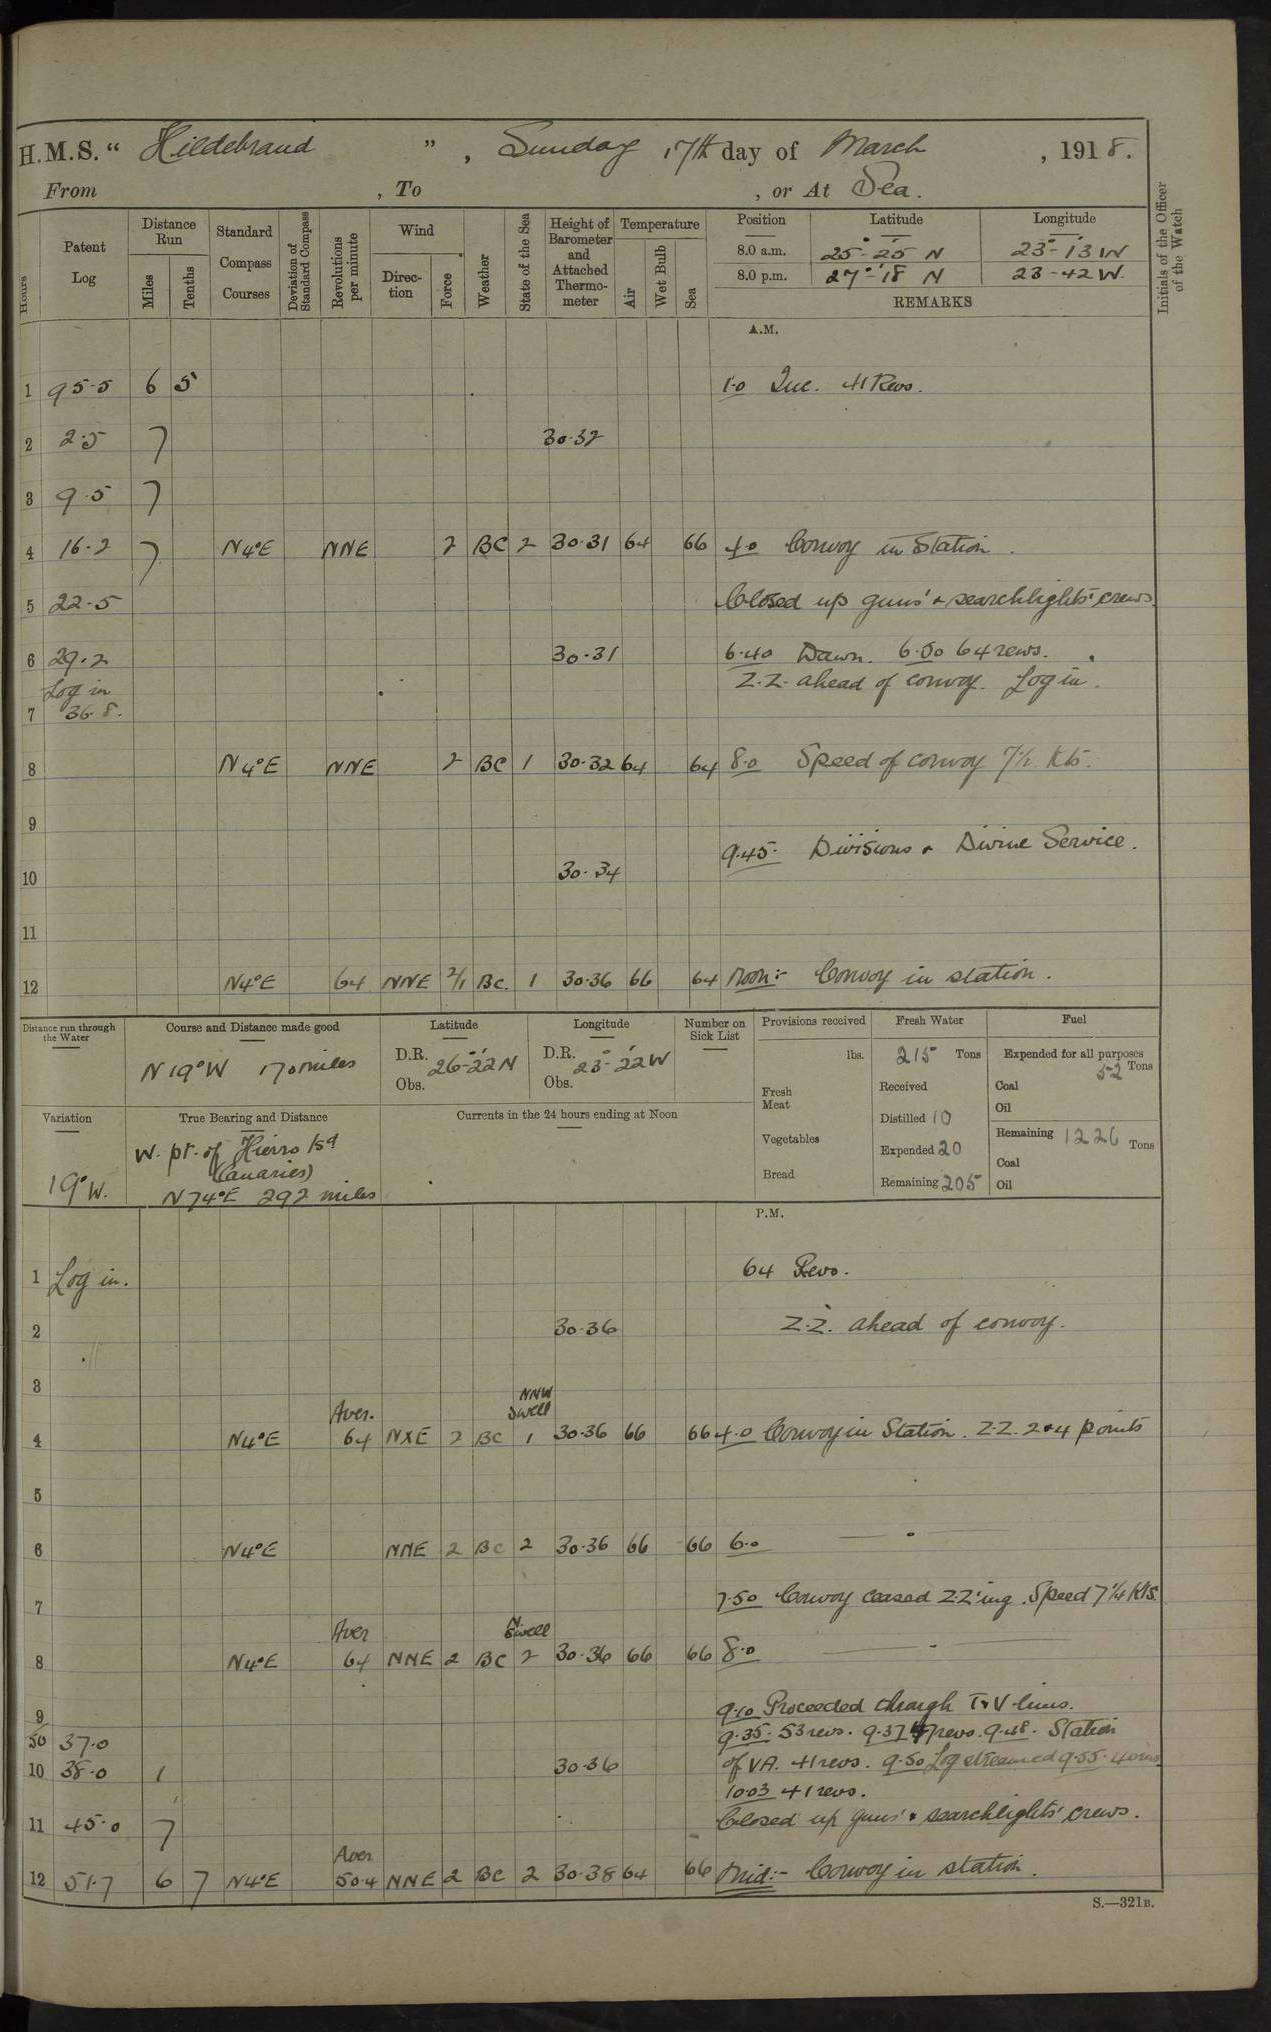 H.M.S. " Hildebrand " , Sunday 17th day of March , 1918.
From , To , or At Sea.
Hours
Patent Log
Distance Run
Miles
Tenths
Standard Compass Courses
Deviation of Standard Compass
Revolutions per minute
Wind
Direc-tion
Force
Weather
State of the Sea
Height of Barometer and Attached Thermo-meter
Temperature
Air
Wet Bulb
Sea
Position Latitude Longitude
8.0 a.m. 25°-25' N 23°-13' W
8.0 p.m. 27°-18' N 23-42 W.
REMARKS
Initials of the Officer of the Watch
A.M.
1 95.5 6 5 1.0 41 Revs.
2 2.5 7 30.32
3 9.5 7
4 16.2 7 N4°E NNE 2 BC 2 30.31 64 66 4.0 Convoy in Station.
5 22.5 Closed up guns' & searchlights' crews.
6 29.2 30.31 6.40 Dawn. 6.50 64 revs.
Log in Z.Z. ahead of convoy. Log in.
7 36.8.
8 N4°E NNE 2 BC 1 30.32 64 64 8.0 Speed of convoy 7½ Kts.
9
9.45. Divisions & Divine Service.
10 30.34
11
12 N4°E 64 NNE 2/1 BC. 1 30.36 66 64 Noon:- Convoy in station.
Distance run through the Water
Course and Distance made good
N 19°W 170 miles
Latitude
D.R. 26°-22' N
Obs.
Longitude
D.R. 23°-22' W
Obs.
Number on Sick List
Provisions received
lbs.
Fresh Meat
Vegetables
Bread
Fresh Water
215 Tons
Received
Distilled 10
Expended 20
Remaining 205
Fuel
Expended for all purposes
52 Tons
Coal
Oil
Remaining 1226 Tons
Coal
Oil
Variation
19°W.
True Bearing and Distance
W. pt. of Hierro Isd
(Canaries)
N 74°E 292 miles
Currents in the 24 hours ending at Noon
P.M.
1 Log in. 64 Revs.
2 30.36 Z.Z. ahead of convoy.
3
NNW
Aver. Swell
4 N4°E 64 NXE 2 BC 1 30.36 66 66 4.0 Convoy in Station. Z.Z. 2 & 4 points
5
6 N4°E NNE 2 BC 2 30.36 66 66 6.0 — " —
7 7.50 Convoy ceased Z.Z'ing. Speed 7¼ Kts.
Aver N. Swell
8 N4°E 64 NNE 2 BC 2 30.36 66 66 8.0 — " —
9 9.10 Proceeded through T & V lines.
50 37.0 9.35. 53 revs. 9.37 47 revs. 9.48. Station
10 38.0 1 30.36 of VA. 41 revs. 9.50 Log streamed 9.55. 40 revs
10.03 41 revs.
11 45.0 7 Closed up guns' & searchlights' crews.
Aver
12 51.7 6 7 N4°E 50.4 NNE 2 BC 2 30.38 64 66 Mid:- Convoy in station.
S.—321B.